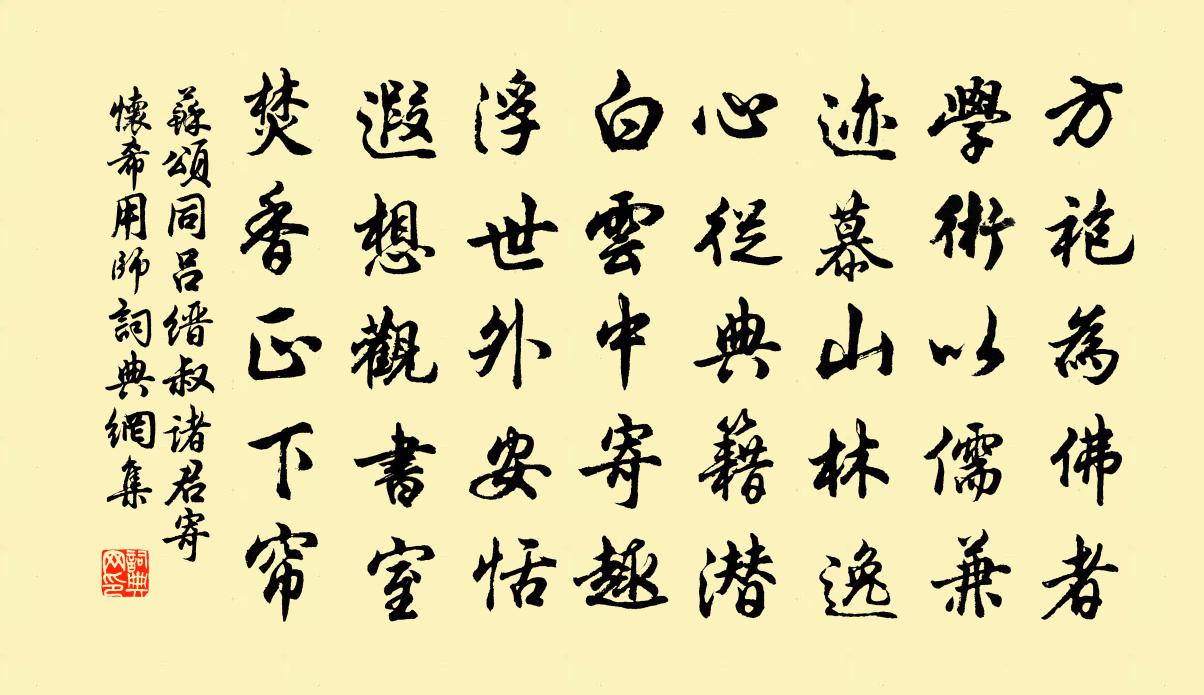 方袍為佛者
學術以儒兼
迹慕山林逸
心從典籍潜
白雲中寄趣
浮世外安恬
遐想觀書室
焚香正下帘
蘇頌同吕缙叔诸君寄
懷希用師詞典網集
詞典
网印